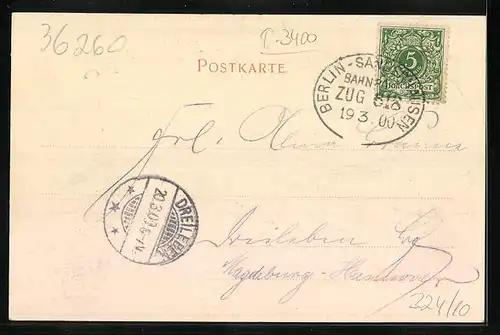 36260
I-3400
POSTKARTE.
5
REICHSPOST
BERLIN-SANGERHAUSEN
BAHNPOST
ZUG
19 3. 00
Frl.
DREILEBEN
20.3.00.
Dreileben
Magdeburg - Hannover
324/10